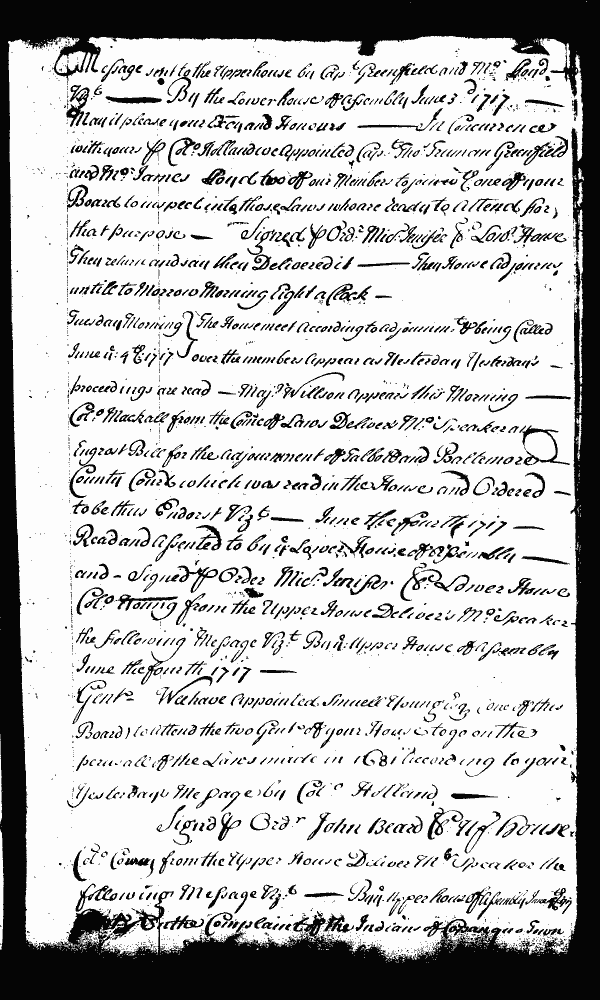 Message sent to the Upperhouse by Cap.t Greenfield and Mr. Lloyd —
Viz.t — By the Lower house of Assembly June 3.d 1717 —
May it please your Excy and Honours — In Concurrence
with yours p Col.o Holland we Appointed Cap.t Tho.s Truman Greenfield
and Mr. James Lloyd two of our Members to joine w.th one of your
Board to inspect into those Laws who are ready to Attend for
that purpose — Signed p Ord.r Mic.l Jenifer Cl. Low.r House
They return and say they Delivered it — The House Adjourns
untill to Morrow Morning Eight a Clock —
Tuesday Morning } The House meet According to adjournm.t & being Called
June y.e 4th 1717 } over the members Appear as Yesterday Yesterday's —
proceedings are read — Maj.r Willson appears this Morning —
Col.o Mackall from the Com.ee of Laws Delivers Mr. Speaker an
Engrost Bill for the Adjournment of Talbott and Baltemore
County Courts which was read in the House and Ordered —
to be thus Endorst Viz.t — June the fourth 1717 —
Read and Assented to by y.e Lower House of Assembly —
and - Signed p Order Mic.l Jenifer Cl. Lower House
Col.o Young from the Upper House Deliver's Mr. Speaker
the following Message Viz.t By y.e Upper House of Assembly
June the fourth 1717 —
Gent.n We have Appointed Samuell Young Esq. (one of this
Board) to Attend the two Gent.n of your House to go on the
perusall of the Laws made in 1681 According to your
Yesterdays Message by Col.o Holland —
Signd p Ord.r John Beard Cl. Up house
Col.o from the Upper House Deliver Mr. Speaker the
following Message Viz.t — By y.e Upper house of Assembly June 4th 1717
the Complaint of the Indians of Town